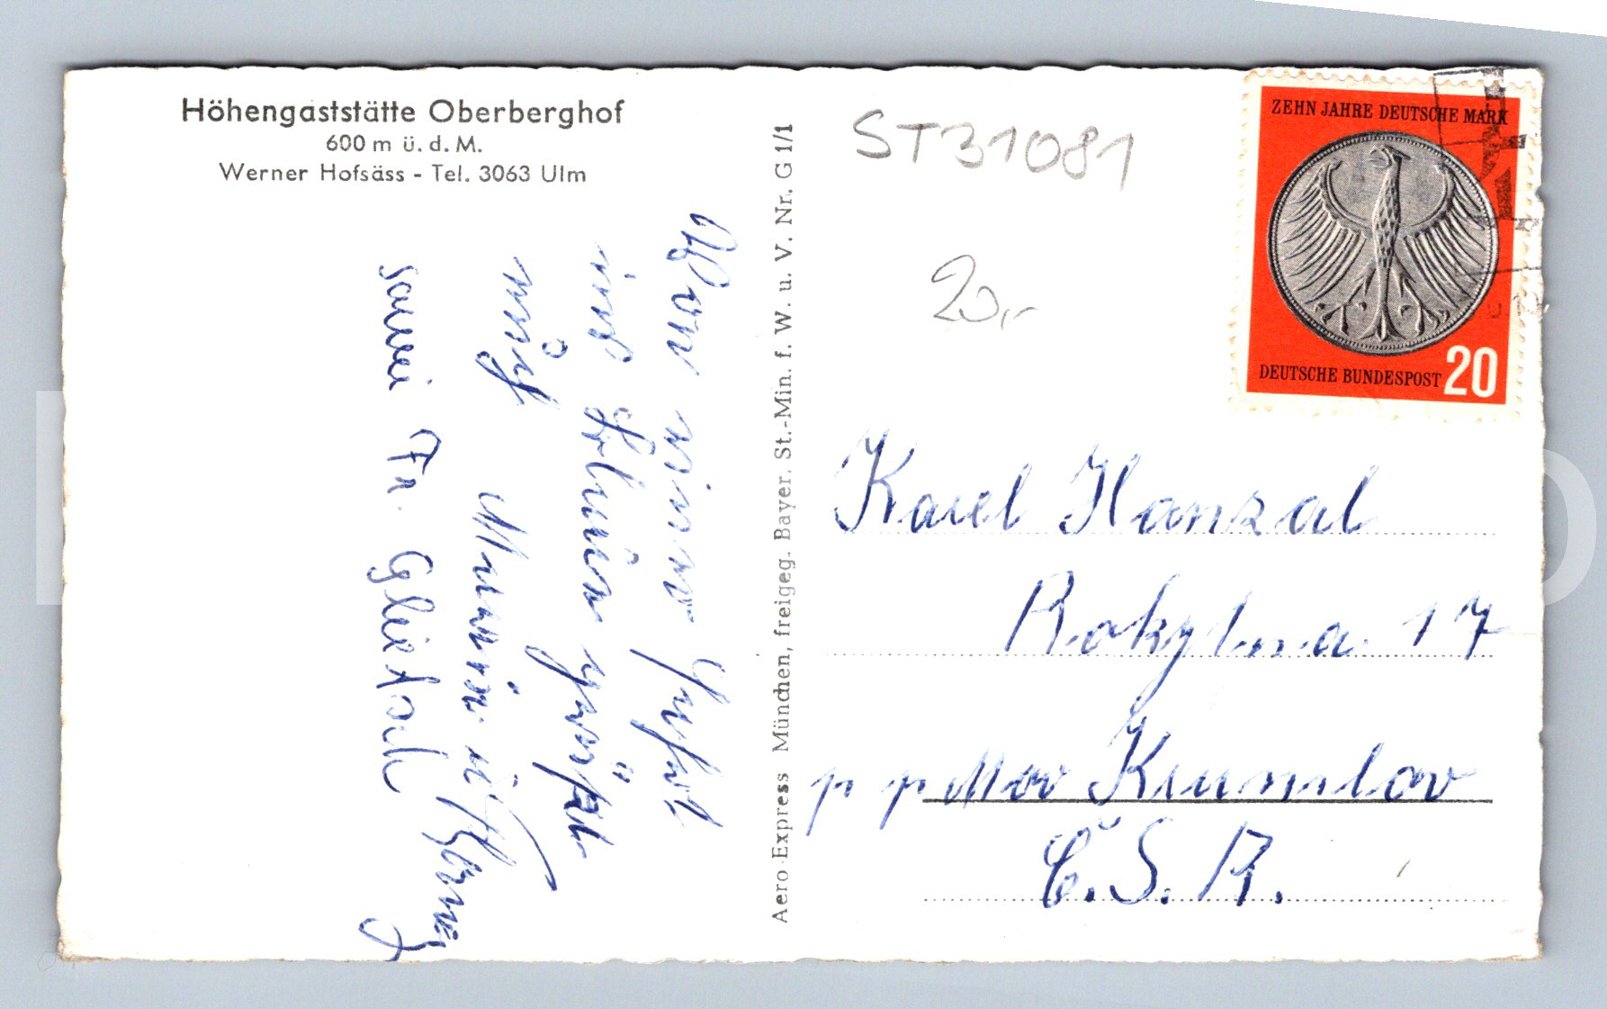 Höhengaststätte Oberberghof
600 m ü. d. M.
Werner Hofsäss - Tel. 3063 Ulm
Von einer Fahrt
ins
mich
sowie Fr.
Aero-Express München, freigeg. Bayer. St.-Min. f. W. u. V. Nr. G 1/1
ST31081
20,-
ZEHN JAHRE DEUTSCHE MARK
DEUTSCHE BUNDESPOST 20
Karel Hanzal
Rokytna 17
p p Mor Krumlov
Č. S. R.